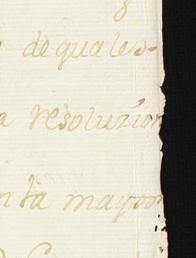 de quales-
a resoluzion
nta mayor